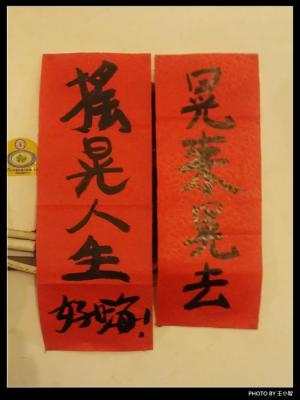 晃來晃去
搖晃人生
好嗨!
PHOTO BY 王小智